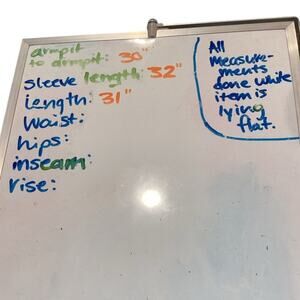 armpit
to armpit: 30"
sleeve length: 32"
length: 31"
Waist:
hips:
inseam:
rise:
All
measure-
ments
done while
item is
lying
flat.